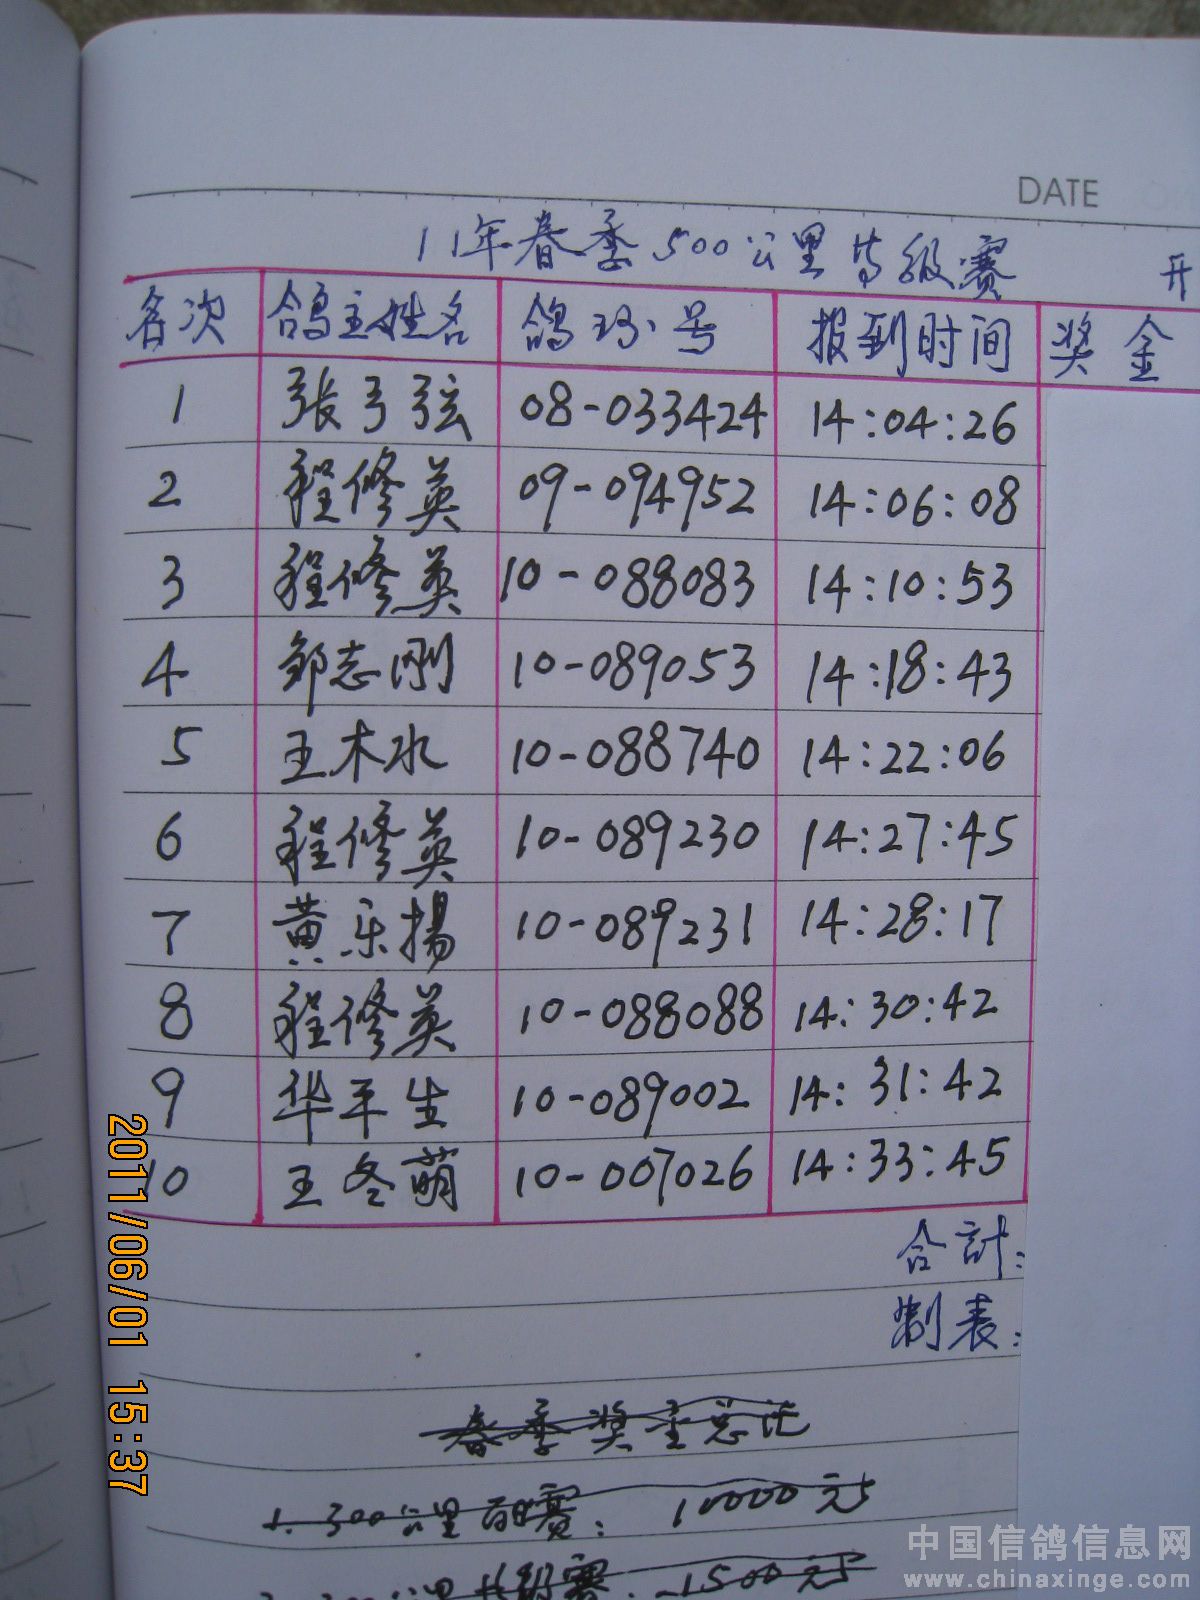 DATE
11年春季500公里等级赛 开
名次 鸽主姓名 鸽环号 报到时间 奖金
1 张弓弦 08-033424 14:04:26
2 程修英 09-094952 14:06:08
3 程修英 10-088083 14:10:53
4 邹志刚 10-089053 14:18:43
5 王木水 10-088740 14:22:06
6 程修英 10-089230 14:27:45
7 黄乐揚 10-089231 14:28:17
8 程修英 10-088088 14:30:42
9 华平生 10-089002 14:31:42
10 王冬萌 10-007026 14:33:45
合計:
制表:
春季奖金总
1. 300公里 赛: 10000元
300公里 级赛: 1500元
2011/06/01 15:37
中国信鸽信息网
www.chinaxinge.com